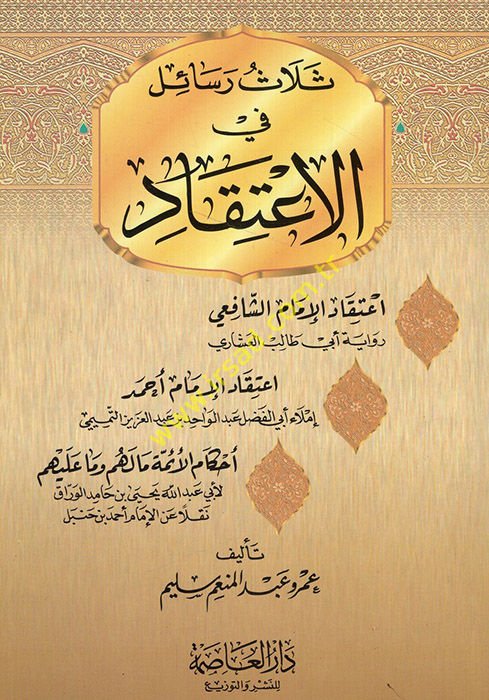 ثَلَاثُ رَسَائِل
فِي
الِاعْتِقَادِ
اعْتِقَاد الإمَام الشَّافِعِي
رواية أبي طالب العشاري
اعتِقَاد الإمَام أحمد
إملاء أبي الفضل عبد الواحد بن عبد العزيز التميمي
أحكام الأئمة مالهم وما عليهم
لأبي عبد الله يحيى بن حامد الوراق
نقلا عن الإمام أحمد بن حنبل
تأليف
عمرو عبد المنعم سليم
دار العاصمة
للنشر والتوزيع